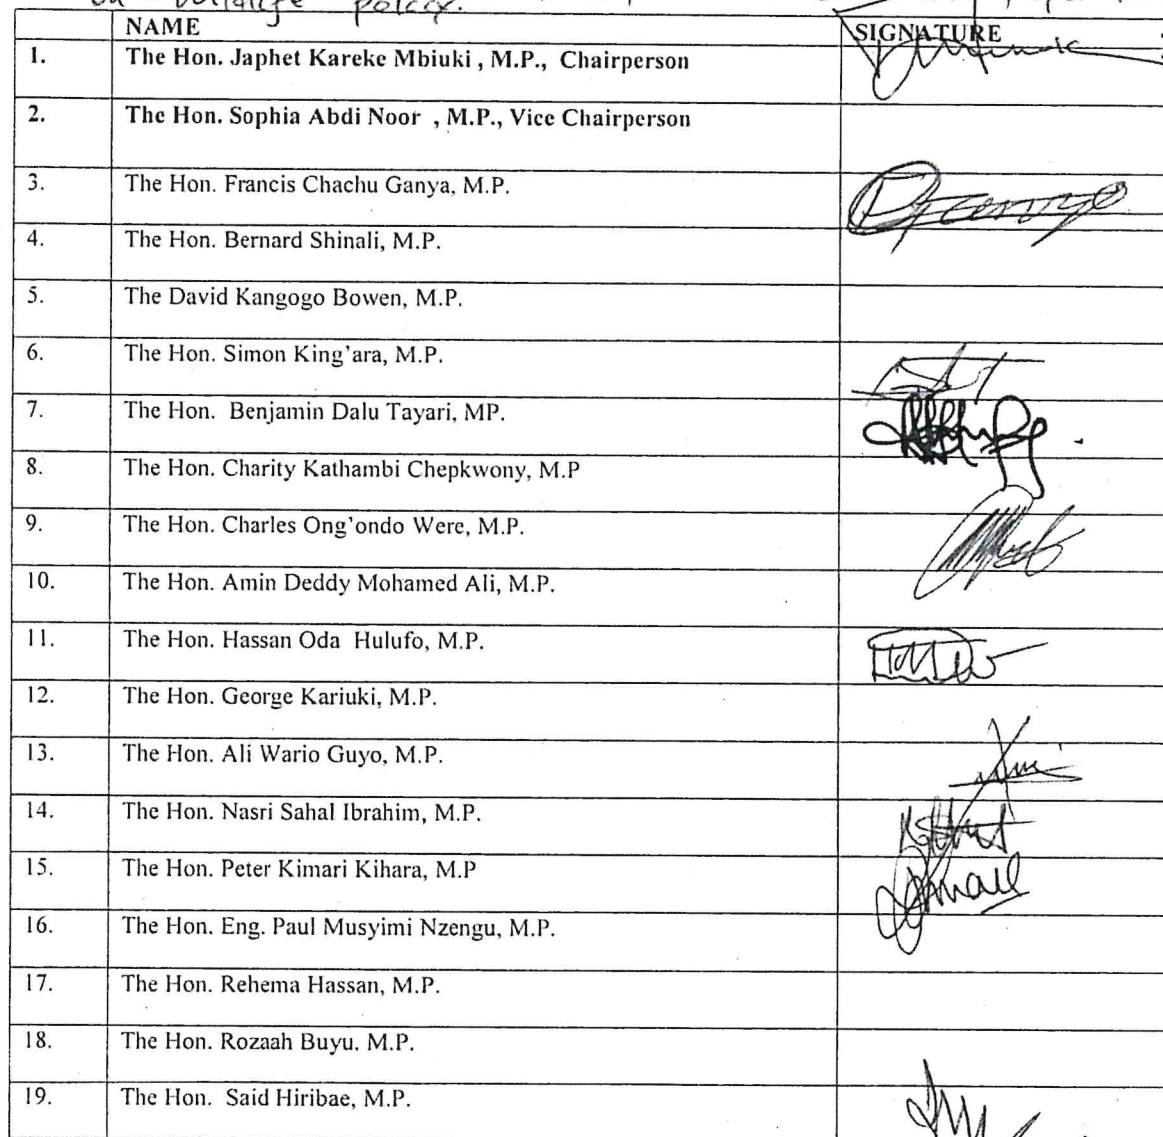 on wildlife policy.
NAME SIGNATURE
1. The Hon. Japhet Kareke Mbiuki , M.P., Chairperson
2. The Hon. Sophia Abdi Noor , M.P., Vice Chairperson
3. The Hon. Francis Chachu Ganya, M.P.
4. The Hon. Bernard Shinali, M.P.
5. The David Kangogo Bowen, M.P.
6. The Hon. Simon King'ara, M.P.
7. The Hon. Benjamin Dalu Tayari, MP.
8. The Hon. Charity Kathambi Chepkwony, M.P
9. The Hon. Charles Ong'ondo Were, M.P.
10. The Hon. Amin Deddy Mohamed Ali, M.P.
11. The Hon. Hassan Oda Hulufo, M.P.
12. The Hon. George Kariuki, M.P.
13. The Hon. Ali Wario Guyo, M.P.
14. The Hon. Nasri Sahal Ibrahim, M.P.
15. The Hon. Peter Kimari Kihara, M.P
16. The Hon. Eng. Paul Musyimi Nzengu, M.P.
17. The Hon. Rehema Hassan, M.P.
18. The Hon. Rozaah Buyu. M.P.
19. The Hon. Said Hiribae, M.P.